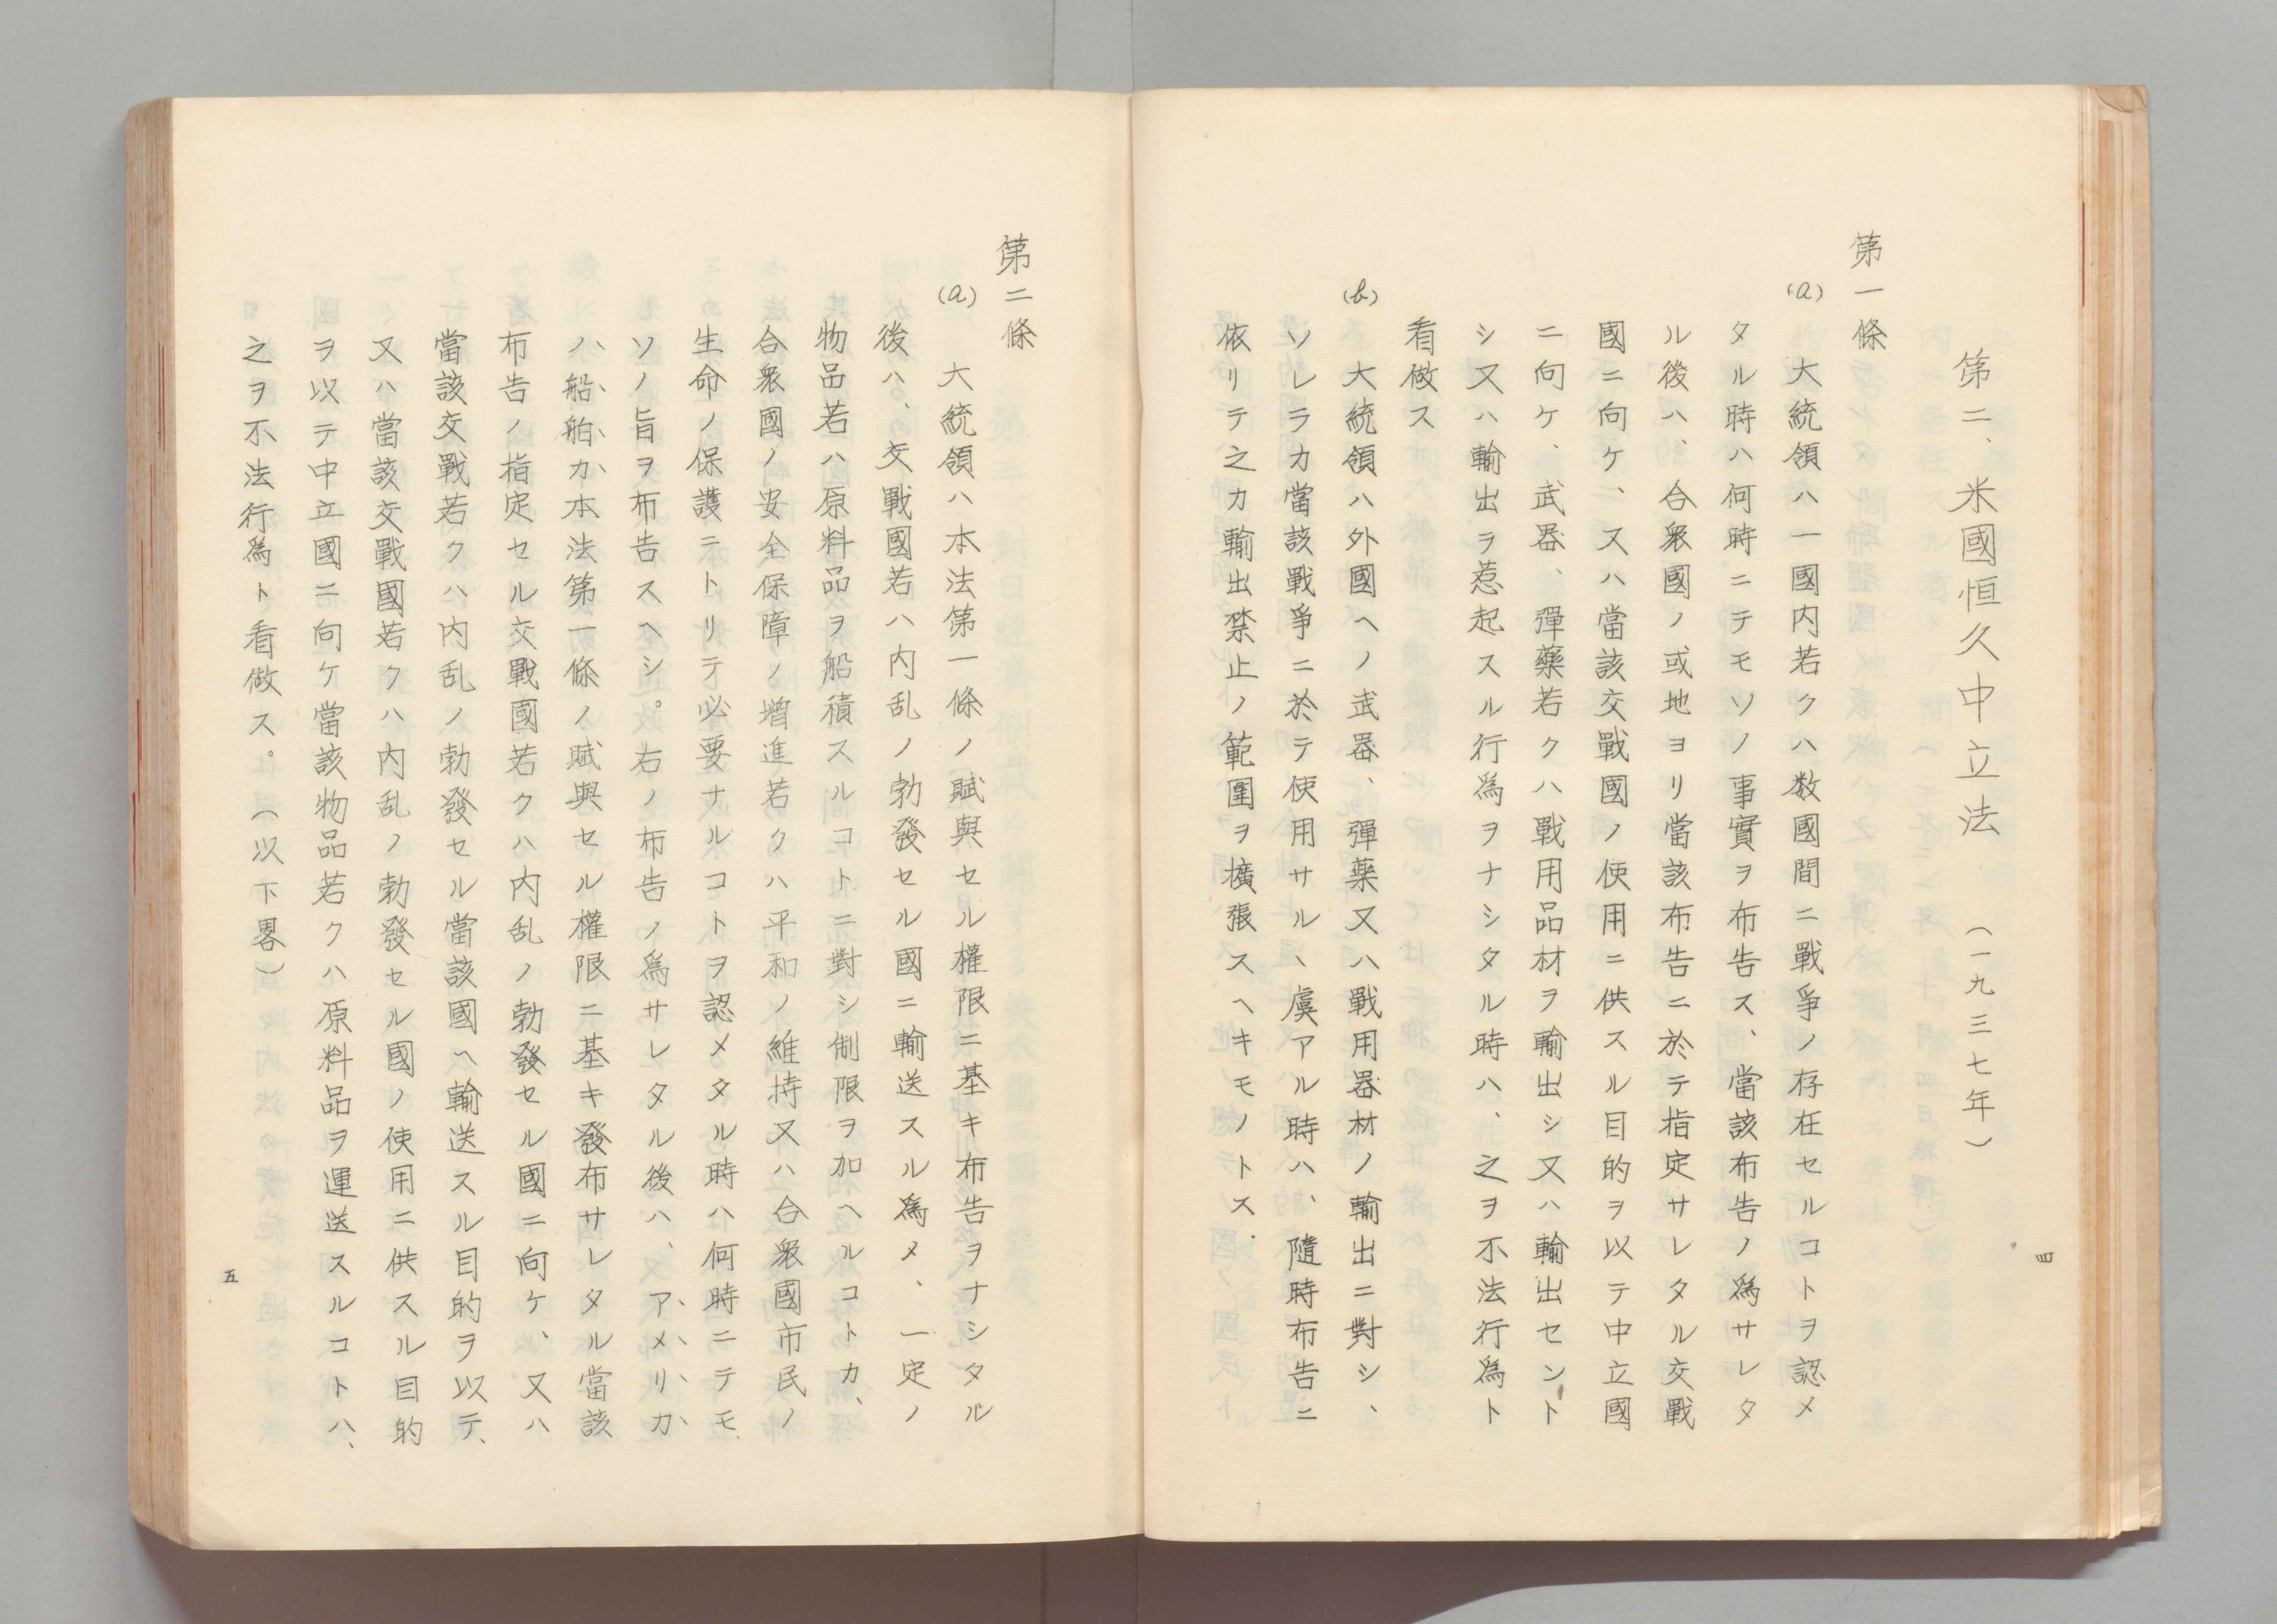 第二、米國恒久中立法　（一九三七年）
第一條
(a)　大統領ハ一國内若クハ数國間ニ戰爭ノ存在セルコトヲ認メ
タル時ハ何時ニテモソノ事實ヲ布告ス、當該布告ノ爲サレタ
ル後ハ、合衆國ノ或地ヨリ當該布告ニ於テ指定サレタル交戰
國ニ向ケ、又ハ當該交戰國ノ使用ニ供スル目的ヲ以テ中立國
ニ向ケ、武器、彈藥若クハ戰用品材ヲ輸出シ又ハ輸出セント
シ又ハ輸出ヲ惹起スル行爲ヲナシタル時ハ、之ヲ不法行爲ト
看做ス
(b)　大統領ハ外國ヘノ武器、彈藥又ハ戰用器材ノ輸出ニ對シ、
ソレラカ當該戰爭ニ於テ使用サルヽ虞アル時ハ、隨時布告ニ
依リテ之カ輸出禁止ノ範圍ヲ擴張スヘキモノトス．
四
第二條
(a)　大統領ハ本法第一條ノ賦與セル權限ニ基キ布告ヲナシタル
後ハ、交戰國若ハ内乱ノ勃發セル國ニ輸送スル爲メ、一定ノ
物品若ハ原料品ヲ船積スルコトニ對シ制限ヲ加ヘルコトカ、
合衆國ノ安全保障ノ増進若クハ平和ノ維持又ハ合衆國市民ノ
生命ノ保護ニトリテ必要ナルコトヲ認メタル時ハ何時ニテモ
ソノ旨ヲ布告スヘシ。右ノ布告ノ爲サレタル後ハ、アメリカ
ハ船舶カ本法第一條ノ賦與セル權限ニ基キ發布サレタル當該
布告ノ指定セル交戰國若クハ内乱ノ勃發セル國ニ向ケ、又ハ
當該交戰若クハ内乱ノ勃發セル當該國ヘ輸送スル目的ヲ以テ、
又ハ當該交戰國若クハ内乱ノ勃發セル國ノ使用ニ供スル目的
ヲ以テ中立國ニ向ケ當該物品若クハ原料品ヲ運送スルコトハ、
之ヲ不法行爲ト看做ス。（以下畧）
五